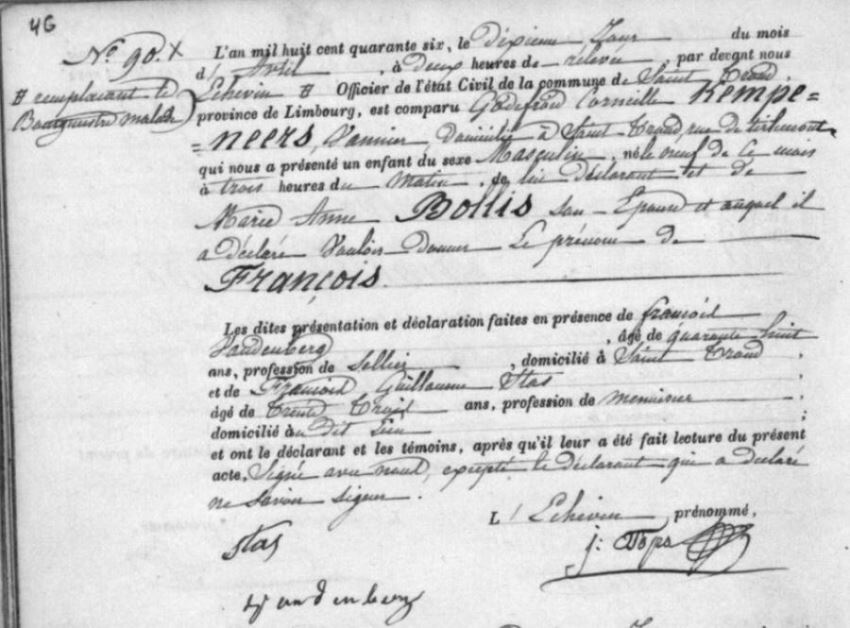 46
N° 90. X
L'an mil huit cent quarante six, le dixieme Jour du mois
d' Avril, à deux heures de relevée, par devant nous
# remplacant le
Echevin # Officier de l'état Civil de la commune de Saint Trond,
Bourgmestre malade
province de Limbourg, est comparu Godefroid Corneille Kempe=
=neers, Vannier, Domicilié à Saint-Trond, rue de tirlemont
qui nous a présenté un enfant du sexe Masculin, né le neuf de ce mois
à trois heures du matin, de lui déclarant et de
Marie Anne Bollis son Epouse et auquel il
a déclaré Vouloir Donner Le prénom de
François.
Les dites présentation et déclaration faites en présence de françois
Vandenberg, âgé de quarante huit
ans, profession de Sellier, domicilié à Saint Trond,
et de François Guillaume Stas
âgé de trente trois ans, profession de menuisier
domicilié au dit lieu;
et ont le déclarant et les témoins, après qu'il leur a été fait lecture du présent
acte, Signé avec nous, excepté le déclarant qui a declaré
ne savoir signer.
L' Echevin prénommé,
Stas
j:
Vandenberg